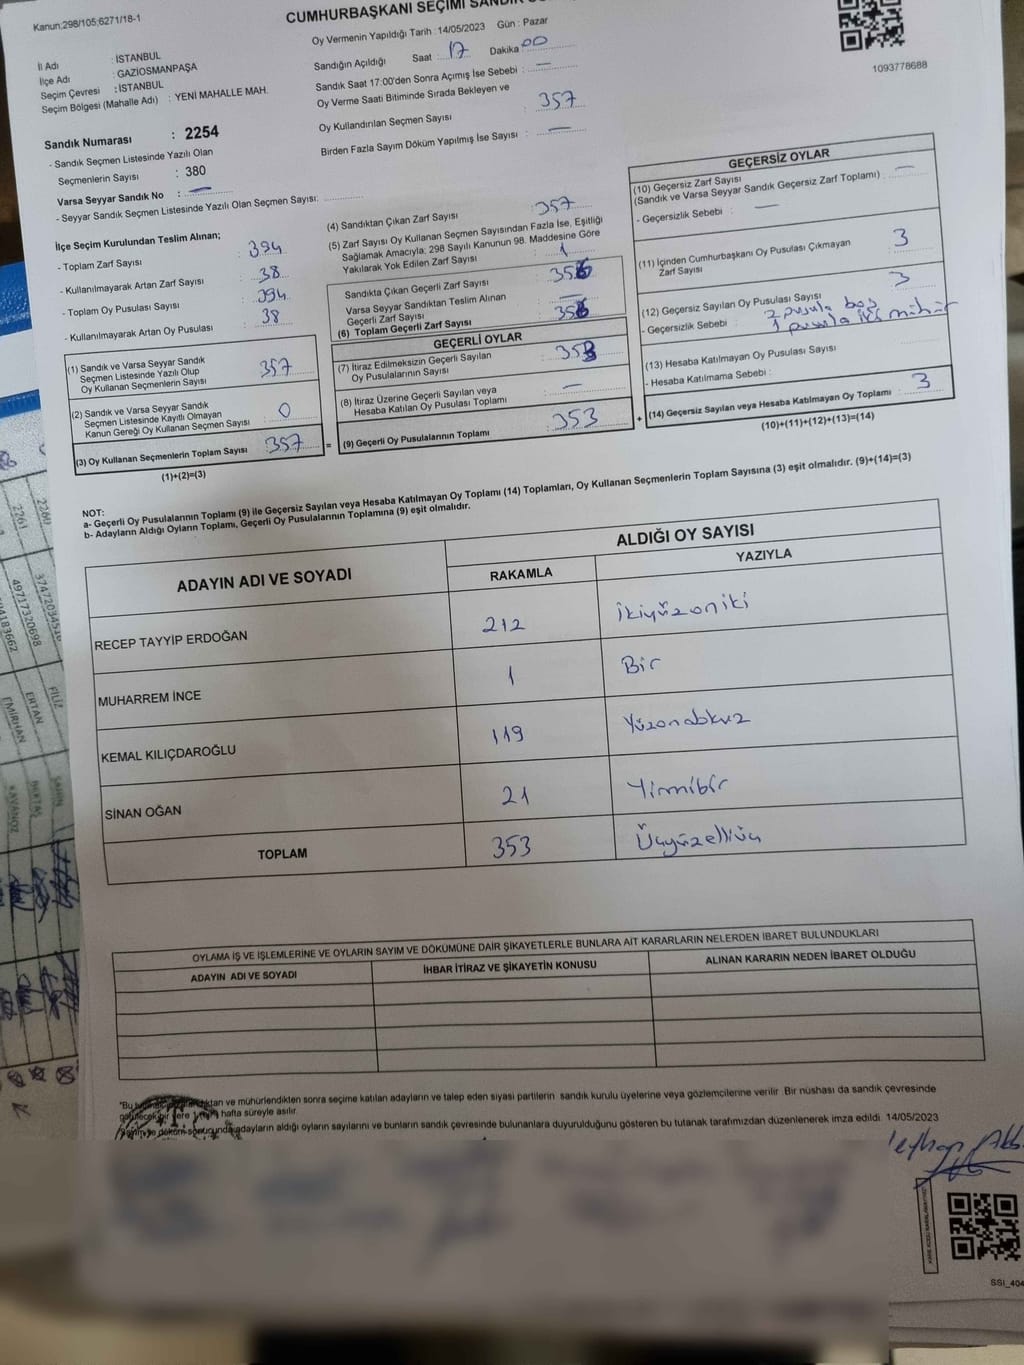 Kanun:298/105;6271/18-1
CUMHURBAŞKANI SEÇİMİ
İl Adı : İSTANBUL
İlçe Adı : GAZİOSMANPAŞA
Seçim Çevresi : İSTANBUL
Seçim Bölgesi (Mahalle Adı) : YENİ MAHALLE MAH.
Sandık Numarası : 2254
- Sandık Seçmen Listesinde Yazılı Olan
Seçmenlerin Sayısı : 380
Varsa Seyyar Sandık No : —
- Seyyar Sandık Seçmen Listesinde Yazılı Olan Seçmen Sayısı:
Oy Vermenin Yapıldığı Tarih :14/05/2023 Gün : Pazar
Sandığın Açıldığı Saat 17 Dakika 00
Sandık Saat 17:00'den Sonra Açımış İse Sebebi : —
Oy Verme Saati Bitiminde Sırada Bekleyen ve
Oy Kullandırılan Seçmen Sayısı : 357
Birden Fazla Sayım Döküm Yapılmış İse Sayısı : —
1093778688
İlçe Seçim Kurulundan Teslim Alınan;
- Toplam Zarf Sayısı : 394
- Kullanılmayarak Artan Zarf Sayısı : 38
- Toplam Oy Pusulası Sayısı : 394
- Kullanılmayarak Artan Oy Pusulası : 38
(1) Sandık ve Varsa Seyyar Sandık
Seçmen Listesinde Yazılı Olup
Oy Kullanan Seçmenlerin Sayısı : 357
(2) Sandık ve Varsa Seyyar Sandık
Seçmen Listesinde Kayıtlı Olmayan
Kanun Gereği Oy Kullanan Seçmen Sayısı : 0
(3) Oy Kullanan Seçmenlerin Toplam Sayısı : 357
(1)+(2)=(3)
(4) Sandıktan Çıkan Zarf Sayısı : 357
(5) Zarf Sayısı Oy Kullanan Seçmen Sayısından Fazla İse, Eşitliği
Sağlamak Amacıyla; 298 Sayılı Kanunun 98. Maddesine Göre
Yakılarak Yok Edilen Zarf Sayısı : 1
Sandıkta Çıkan Geçerli Zarf Sayısı : 356
Varsa Seyyar Sandıktan Teslim Alınan
Geçerli Zarf Sayısı : —
(6) Toplam Geçerli Zarf Sayısı : 356
GEÇERLİ OYLAR
(7) İtiraz Edilmeksizin Geçerli Sayılan
Oy Pusulalarının Sayısı : 353
(8) İtiraz Üzerine Geçerli Sayılan veya
Hesaba Katılan Oy Pusulası Toplamı : —
= (9) Geçerli Oy Pusulalarının Toplamı : 353
GEÇERSİZ OYLAR
(10) Geçersiz Zarf Sayısı
(Sandık ve Varsa Seyyar Sandık Geçersiz Zarf Toplamı) : —
- Geçersizlik Sebebi : —
(11) İçinden Cumhurbaşkanı Oy Pusulası Çıkmayan
Zarf Sayısı : 3
(12) Geçersiz Sayılan Oy Pusulası Sayısı : 3
- Geçersizlik Sebebi : 2 pusula boş
1 pusula iki mühür
(13) Hesaba Katılmayan Oy Pusulası Sayısı :
- Hesaba Katılmama Sebebi :
+ (14) Geçersiz Sayılan veya Hesaba Katılmayan Oy Toplamı : 3
(10)+(11)+(12)+(13)=(14)
NOT:
a- Geçerli Oy Pusulalarının Toplamı (9) ile Geçersiz Sayılan veya Hesaba Katılmayan Oy Toplamı (14) Toplamları, Oy Kullanan Seçmenlerin Toplam Sayısına (3) eşit olmalıdır. (9)+(14)=(3)
b- Adayların Aldığı Oyların Toplamı, Geçerli Oy Pusulalarının Toplamına (9) eşit olmalıdır.
ADAYIN ADI VE SOYADI
ALDIĞI OY SAYISI
RAKAMLA YAZIYLA
RECEP TAYYİP ERDOĞAN 212 İkiyüzoniki
MUHARREM İNCE 1 Bir
KEMAL KILIÇDAROĞLU 119 Yüzondokuz
SİNAN OĞAN 21 Yirmibir
TOPLAM 353 Üçyüzelliüç
OYLAMA İŞ VE İŞLEMLERİNE VE OYLARIN SAYIM VE DÖKÜMÜNE DAİR ŞİKAYETLERLE BUNLARA AİT KARARLARIN NELERDEN İBARET BULUNDUKLARI
ADAYIN ADI VE SOYADI İHBAR İTİRAZ VE ŞİKAYETİN KONUSU ALINAN KARARIN NEDEN İBARET OLDUĞU
ve mühürlendikten sonra seçime katılan adayların ve talep eden siyasi partilerin sandık kurulu üyelerine veya gözlemcilerine verilir. Bir nüshası da sandık çevresinde
hafta süreyle asılır.
adayların aldığı oyların sayılarını ve bunların sandık çevresinde bulunanlara duyurulduğunu gösteren bu tutanak tarafımızdan düzenlenerek imza edildi. 14/05/2023
SSI_404
2260
2261
497171320698
FİLİZ
ERTAN
EMİRHAN
ŞAHİN
KAVANOZ